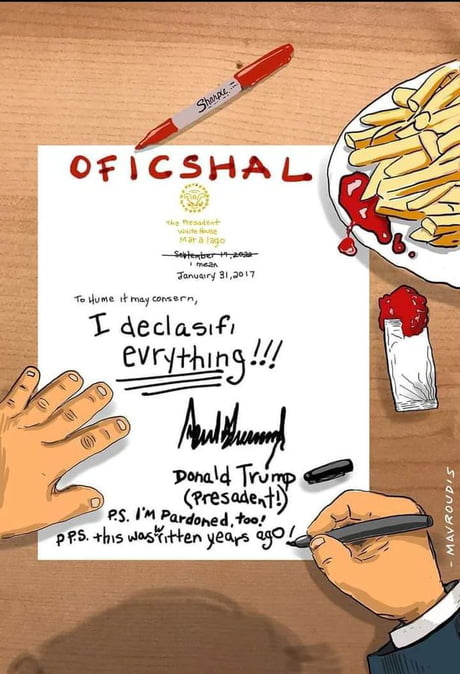 Sharpie
OFICSHAL
The Presadent
White House
Mar a lago
September 17, 2022
I mean
Januairy 31,2017
To Hume it may consern,
I declasifi
evrything!!!
Donald Trump
(Presadent!)
P.S. I'M Pardoned, too!
P P.S. this was writen years ago!
- MAVROUDIS